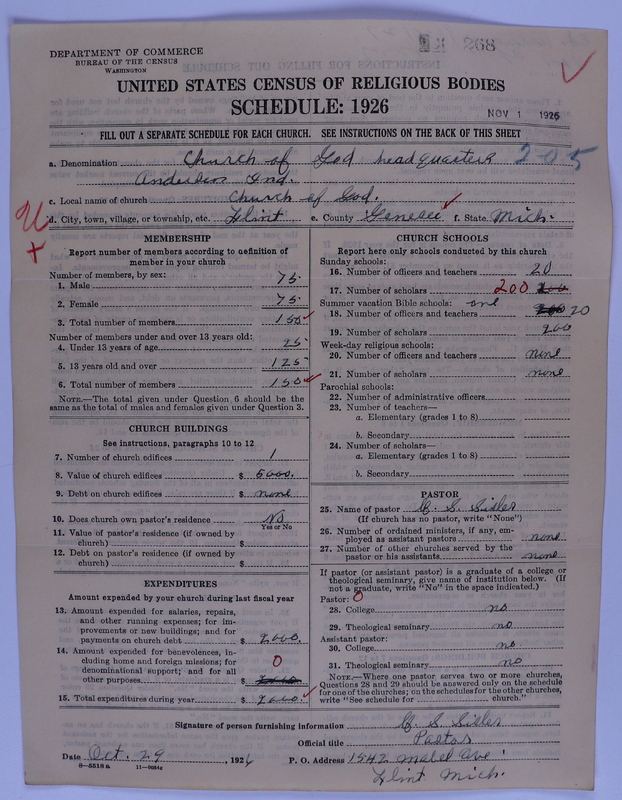 268
DEPARTMENT OF COMMERCE
BUREAU OF THE CENSUS
WASHINGTON
UNITED STATES CENSUS OF RELIGIOUS BODIES
SCHEDULE: 1926
NOV 1 1926
FILL OUT A SEPARATE SCHEDULE FOR EACH CHURCH. SEE INSTRUCTIONS ON THE BACK OF THIS SHEET
a. Denomination Church of God headquarters 205
Anderson Ind.
c. Local name of church Church of God.
d. City, town, village, or township, etc. Flint e. County Genesee f. State Mich.
MEMBERSHIP
Report number of members according to definition of
member in your church
Number of members, by sex:
1. Male 75
2. Female 75
3. Total number of members 150
Number of members under and over 13 years old:
4. Under 13 years of age 25
5. 13 years old and over 125
6. Total number of members 150
NOTE.—The total given under Question 6 should be
same as the total of males and females given under Question 3.
CHURCH BUILDINGS
See instructions, paragraphs 10 to 12
7. Number of church edifices 1
8. Value of church edifices $ 5000.
9. Debt on church edifices $ none
10. Does church own pastor's residence No
Yes or No
11. Value of pastor's residence (if owned by
church) $
12. Debt on pastor's residence (if owned by
church) $
EXPENDITURES
Amount expended by your church during last fiscal year
13. Amount expended for salaries, repairs,
and other running expenses; for im-
provements or new buildings; and for
payments on church debt $ 2000.
14. Amount expended for benevolences, in-
cluding home and foreign missions; for
denominational support; and for all
other purposes $ 0
15. Total expenditures during year $
CHURCH SCHOOLS
Report here only schools conducted by this church
Sunday schools:
16. Number of officers and teachers 20
17. Number of scholars 200
Summer vacation Bible schools: one
18. Number of officers and teachers 200 20
19. Number of scholars 200
Week-day religious schools:
20. Number of officers and teachers none
21. Number of scholars none
Parochial schools:
22. Number of administrative officers
23. Number of teachers—
a. Elementary (grades 1 to 8)
b. Secondary
24. Number of scholars—
a. Elementary (grades 1 to 8)
b. Secondary
PASTOR
25. Name of pastor C. S. Sisler
(If church has no pastor, write "None")
26. Number of ordained ministers, if any, em-
ployed as assistant pastors none
27. Number of other churches served by the
pastor or his assistants none
If pastor (or assistant pastor) is a graduate of a college or
theological seminary, give name of institution below. (If
not a graduate, write "No" in the space indicated.)
Pastor: 0
28. College no
29. Theological seminary no
Assistant pastor:
30. College no
31. Theological seminary no
NOTE.—Where one pastor serves two or more churches,
Questions 28 and 29 should be answered only on the schedule
for one of the churches; on the schedules for the other churches,
write "See schedule for church."
Signature of person furnishing information C. S. Sisler
Official title Pastor
Date Oct. 29, 1926 P. O. Address 1542 Mabel Ave
8—5518 a 11—9084 Flint Mich.